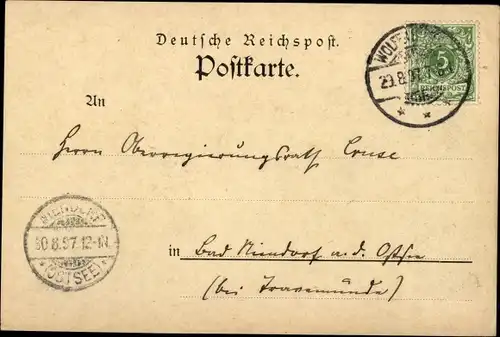 Deutsche Reichspost.
Postkarte.
An
Herrn Oberregierungsrath Cruse
in Bad Niendorf a. d. Ostsee
(bei Travemünde)
5
REICHSPOST
NIENDORF
30.8.97.12-1N.
*(OSTSEE)*